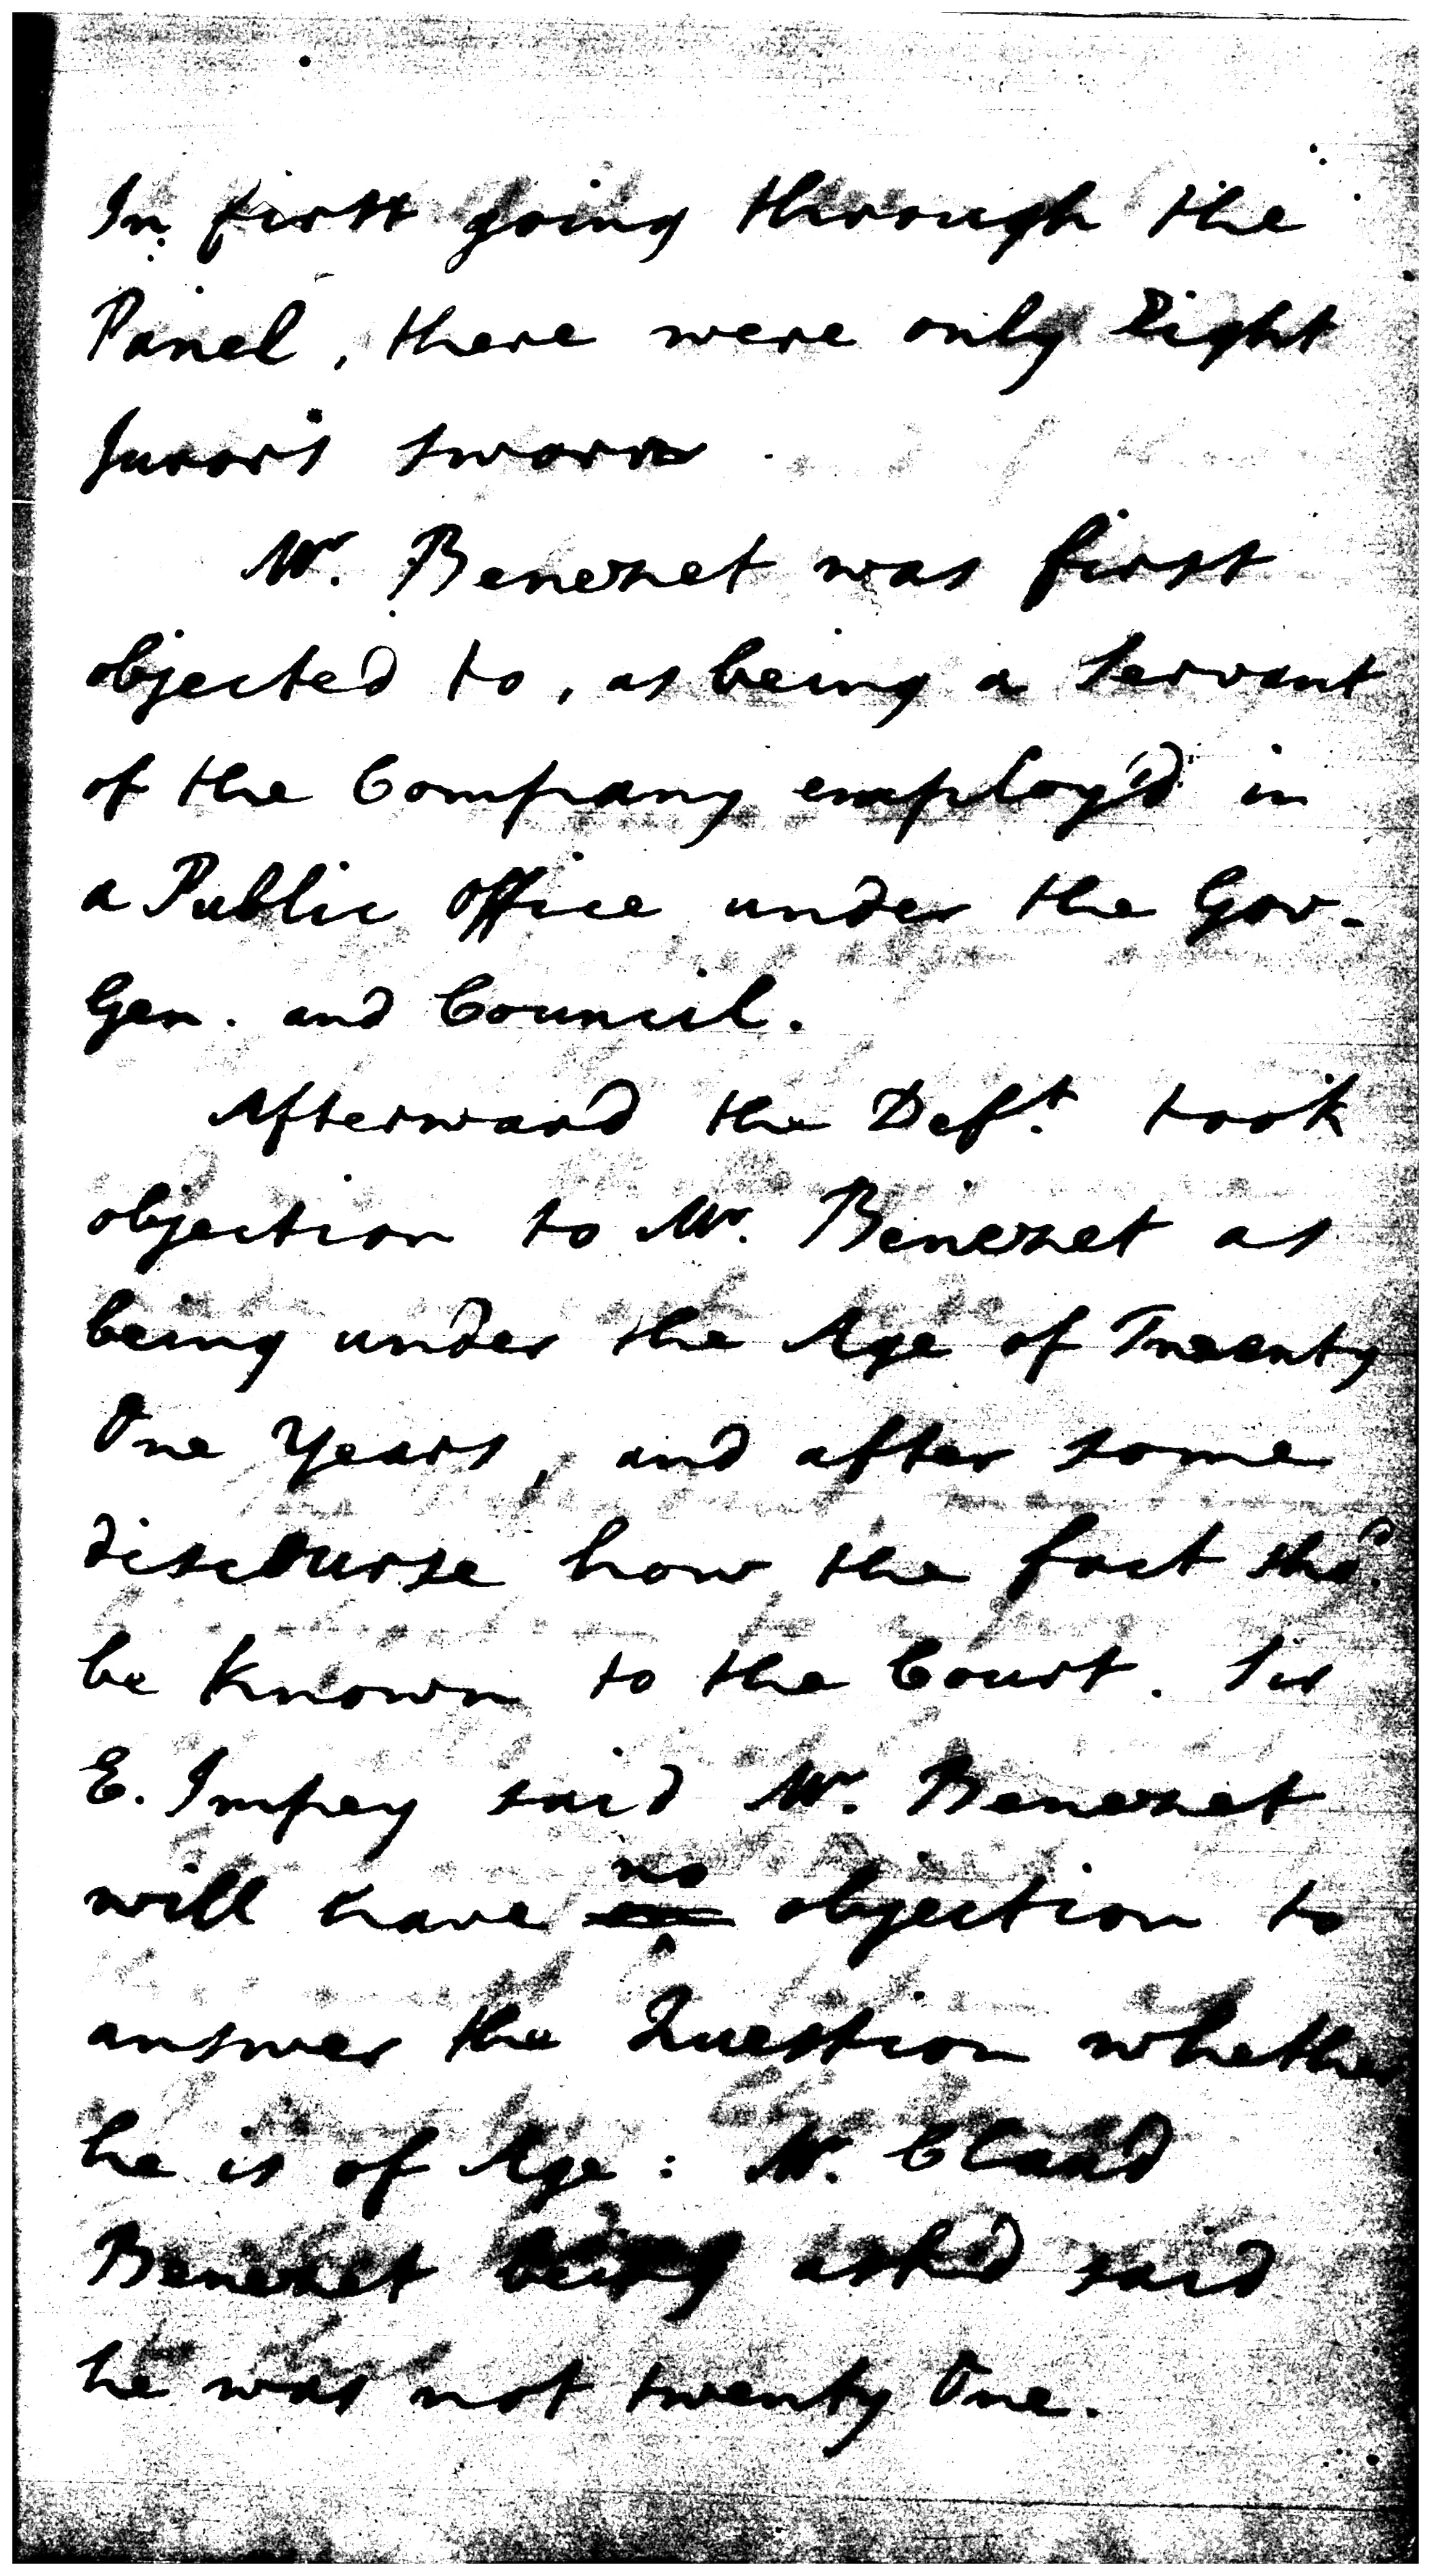 In first going through the
Panel, there were only Eight
Jurors sworn
Mr. Benezet was first
objected to, as being a Servant
of the Company employ'd in
a Public Office under the Gov-
Gen. and Council.
Afterward the Deft. took
objection to Mr. Benezet as
being under the Age of Twenty
One Years, and after some
discourse how the fact shod.
be known to the Court. Sir
E. Impey said Mr. Benezet
will have no objection to
answer the Question whether
he is of Age: Mr.
Benezet being ask'd said
he was not twenty One.